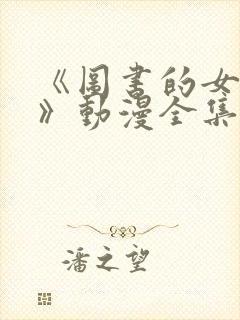 《圖書的女
》動漫全集
潘之望